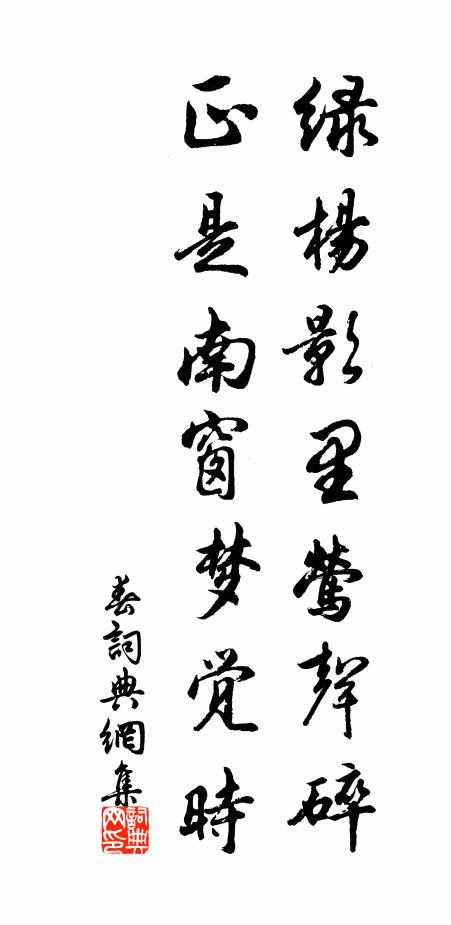 绿杨影里莺聲碎
正是南窗梦觉時
春詞典網集
詞典网印